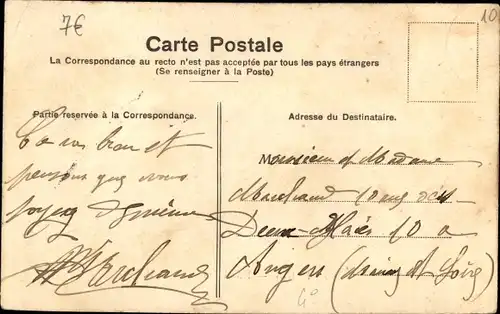 7€
10
Carte Postale
La Correspondance au recto n'est pas acceptée par tous les pays étrangers
(Se renseigner à la Poste)
Partie reservée à la Correspondance.
Adresse du Destinataire.
Ça va bien et
pensons que vous
soyez de même
Marchand
Monsieur et Madame
Marchand 10 rue des
Deux-Haies 10 a
Angers (Maine et Loire)